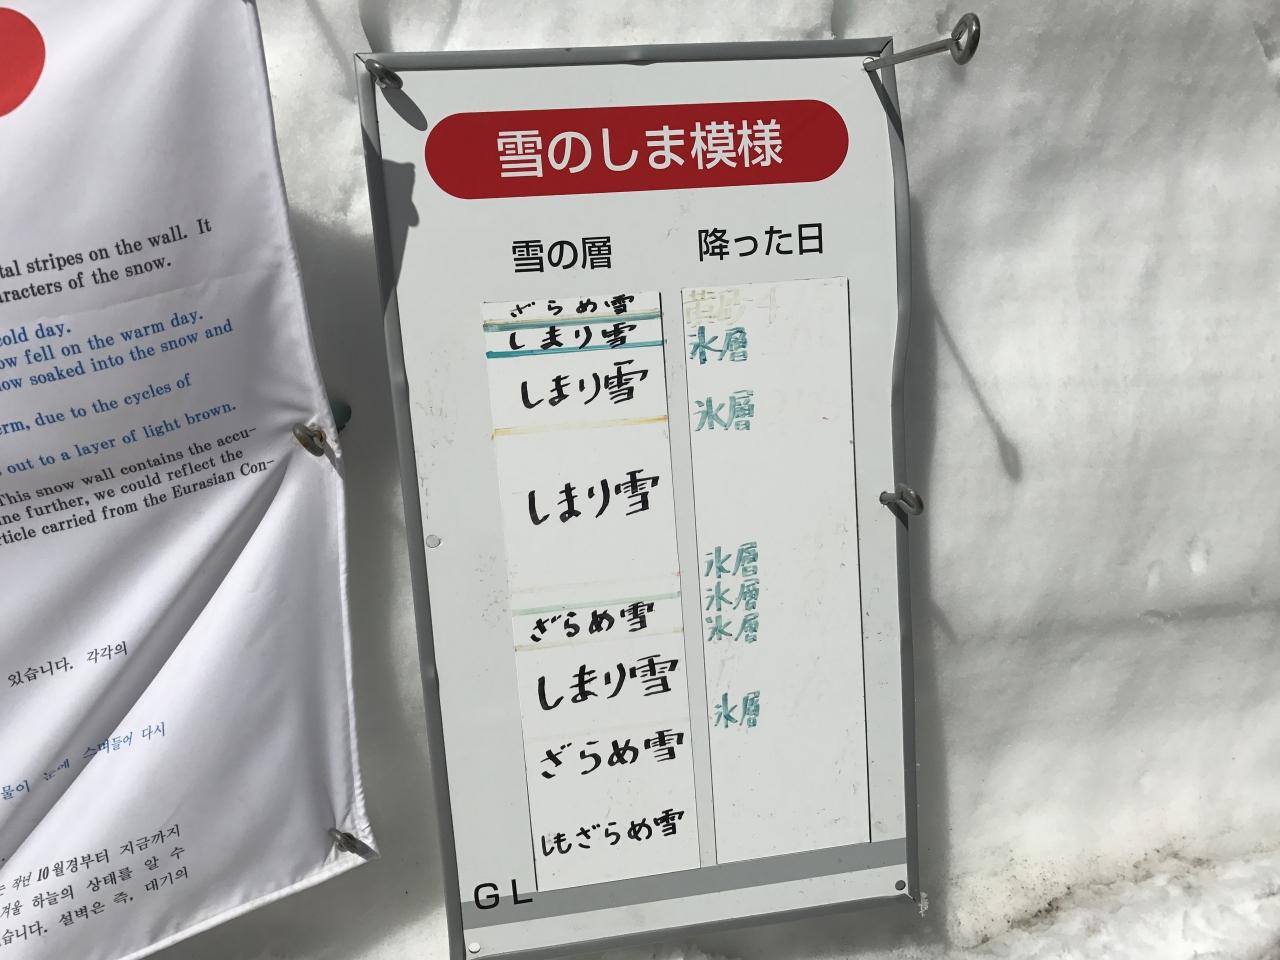 tal stripes on the wall. It
racters of the snow.
cold day.
ow fell on the warm day.
now soaked into the snow and
erm, due to the cycles of
out to a layer of light brown.
This snow wall contains the accu-
ne further, we could reflect the
rticle carried from the Eurasian Con-
있습니다. 각각의
물이 눈에 스며들어 다시
는 작년 10월경부터 지금까지
겨울 하늘의 상태를 알 수
습니다. 설벽은 즉, 대기의
雪のしま模様
雪の層
降った日
ざらめ雪
しまり雪
しまり雪
しまり雪
ざらめ雪
しまり雪
ざらめ雪
しもざらめ雪
黄砂 4
氷層
氷層
氷層
氷層
氷層
氷層
GL